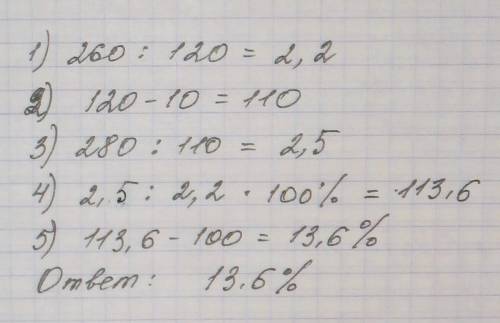 1) 260 : 120 = 2,2
2) 120 - 10 = 110
3) 280 : 110 = 2,5
4) 2,5 : 2,2 · 100% = 113,6
5) 113,6 - 100 = 13,6%
Ответ: 13.6%